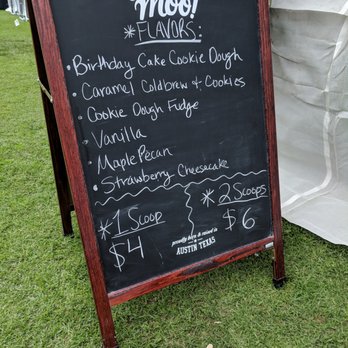 moo!
*FLAVORS:
• Birthday Cake Cookie Dough
• Caramel Coldbrew + Cookies
• Cookie Dough Fudge
• Vanilla
• Maple Pecan
• Strawberry Cheesecake
* 1 Scoop
$4
* 2 Scoops
$6
proudly born & raised in
AUSTIN TEXAS